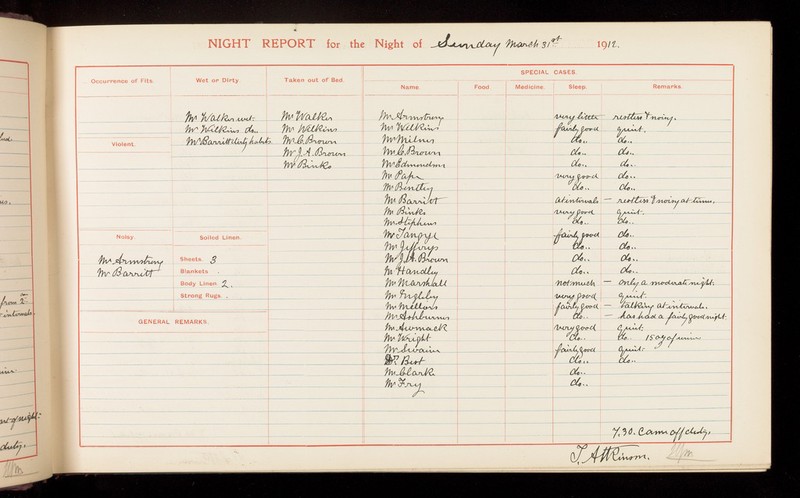 NIGHT REPORT for the Night of Sunday March 31st 1912.
SPECIAL CASES.
Occurrence of Fits. Wet or Dirty. Taken out of Bed. Name. Food. Medicine. Sleep. Remarks.
Mr Walker wet. Mr Walker Mr Armstrong very little restless & noisy.
Mr Wilkins do.. Mr Wilkins Mr Wilkins fairly good quiet.
Violent. Mr Barritt dirty habits Mr C. Brown Mr Milnes do.. do..
Mr J. A. Brown Mr C. Brown do.. do..
Mr Binks Mr Edmondson do.. do..
Mr Pape very good do..
Mr Bentley do.. do..
Mr Barritt at intervals — restless & noisy at times.
Mr Binks very good quiet.
Mr Stephens do.. do..
Noisy. Soiled Linen. Mr Tangye fairly good do..
Mr Jeffreys do.. do..
Mr Armstrong Sheets 3 Mr J. A. Brown do.. do..
Mr Barritt Blankets . Mr Handley do.. do..
Body Linen 2. Mr Marshall not much — only a moderate night.
Strong Rugs . Mr Inglesby very good quiet.
Mr Mellors fairly good — Talking at intervals.
GENERAL REMARKS. Mr Ashburns do.. — has had a fairly good night
Mr Awmack very good quiet.
Mr Wright do.. do.. 15 ozs of urine
Mr Swain fairly good quiet.
Dr Brot do.. do..
Mr Clark do..
Mr Fry do..
7.30. Came off duty.
J. Atkinson.